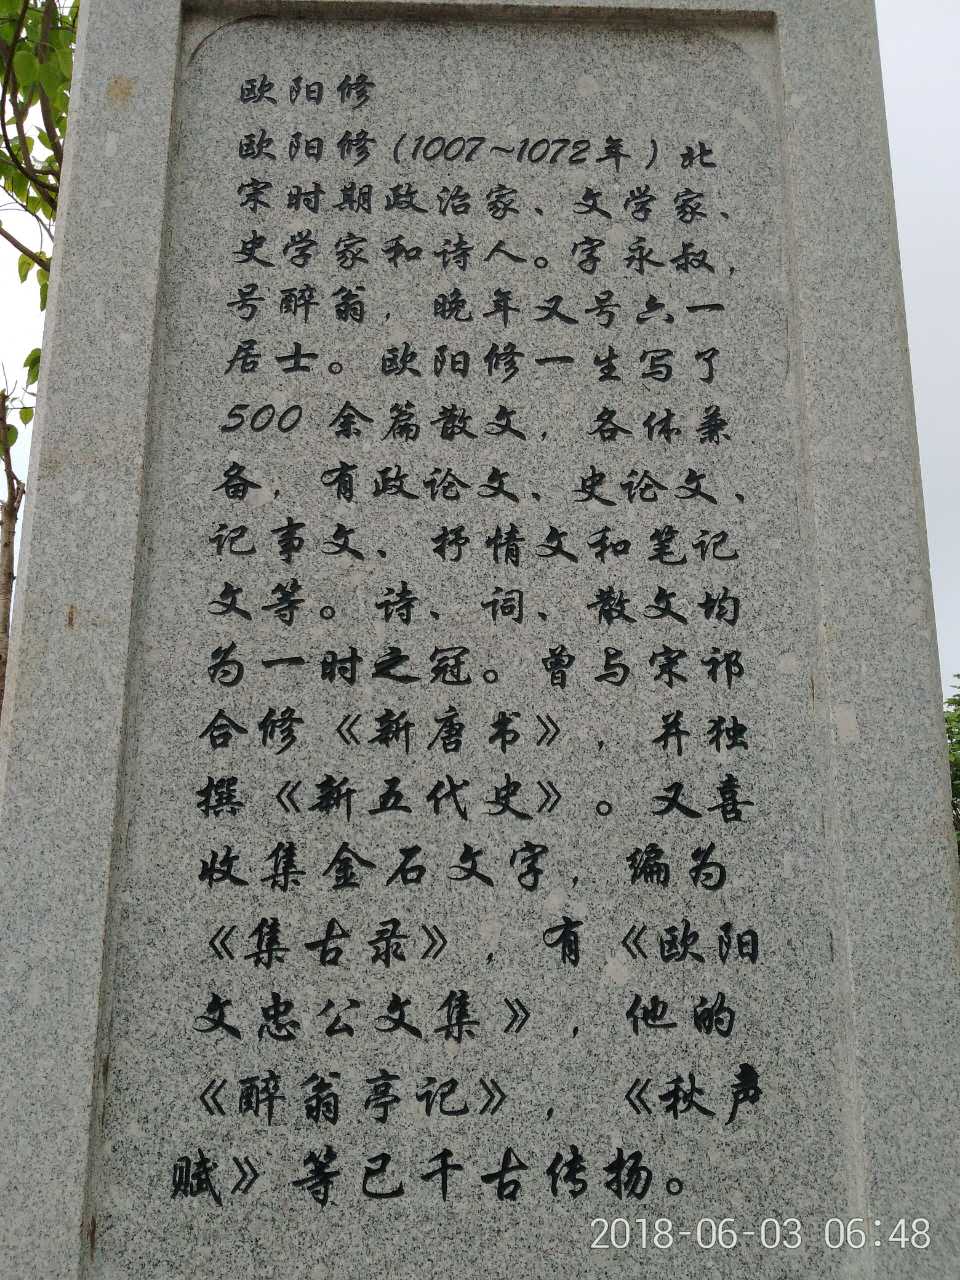 欧阳修
欧阳修(1007~1072年)北
宋时期政治家、文学家、
史学家和诗人。字永叔,
号醉翁,晚年又号六一
居士。欧阳修一生写了
500余篇散文,各体兼
备,有政论文、史论文、
记事文、抒情文和笔记
文等。诗、词、散文均
为一时之冠。曾与宋祁
合修《新唐书》,并独
撰《新五代史》。又喜
收集金石文字,编为
《集古录》,有《欧阳
文忠公文集》,他的
《醉翁亭记》,《秋声
赋》等已千古传扬。
2018-06-03 06:48